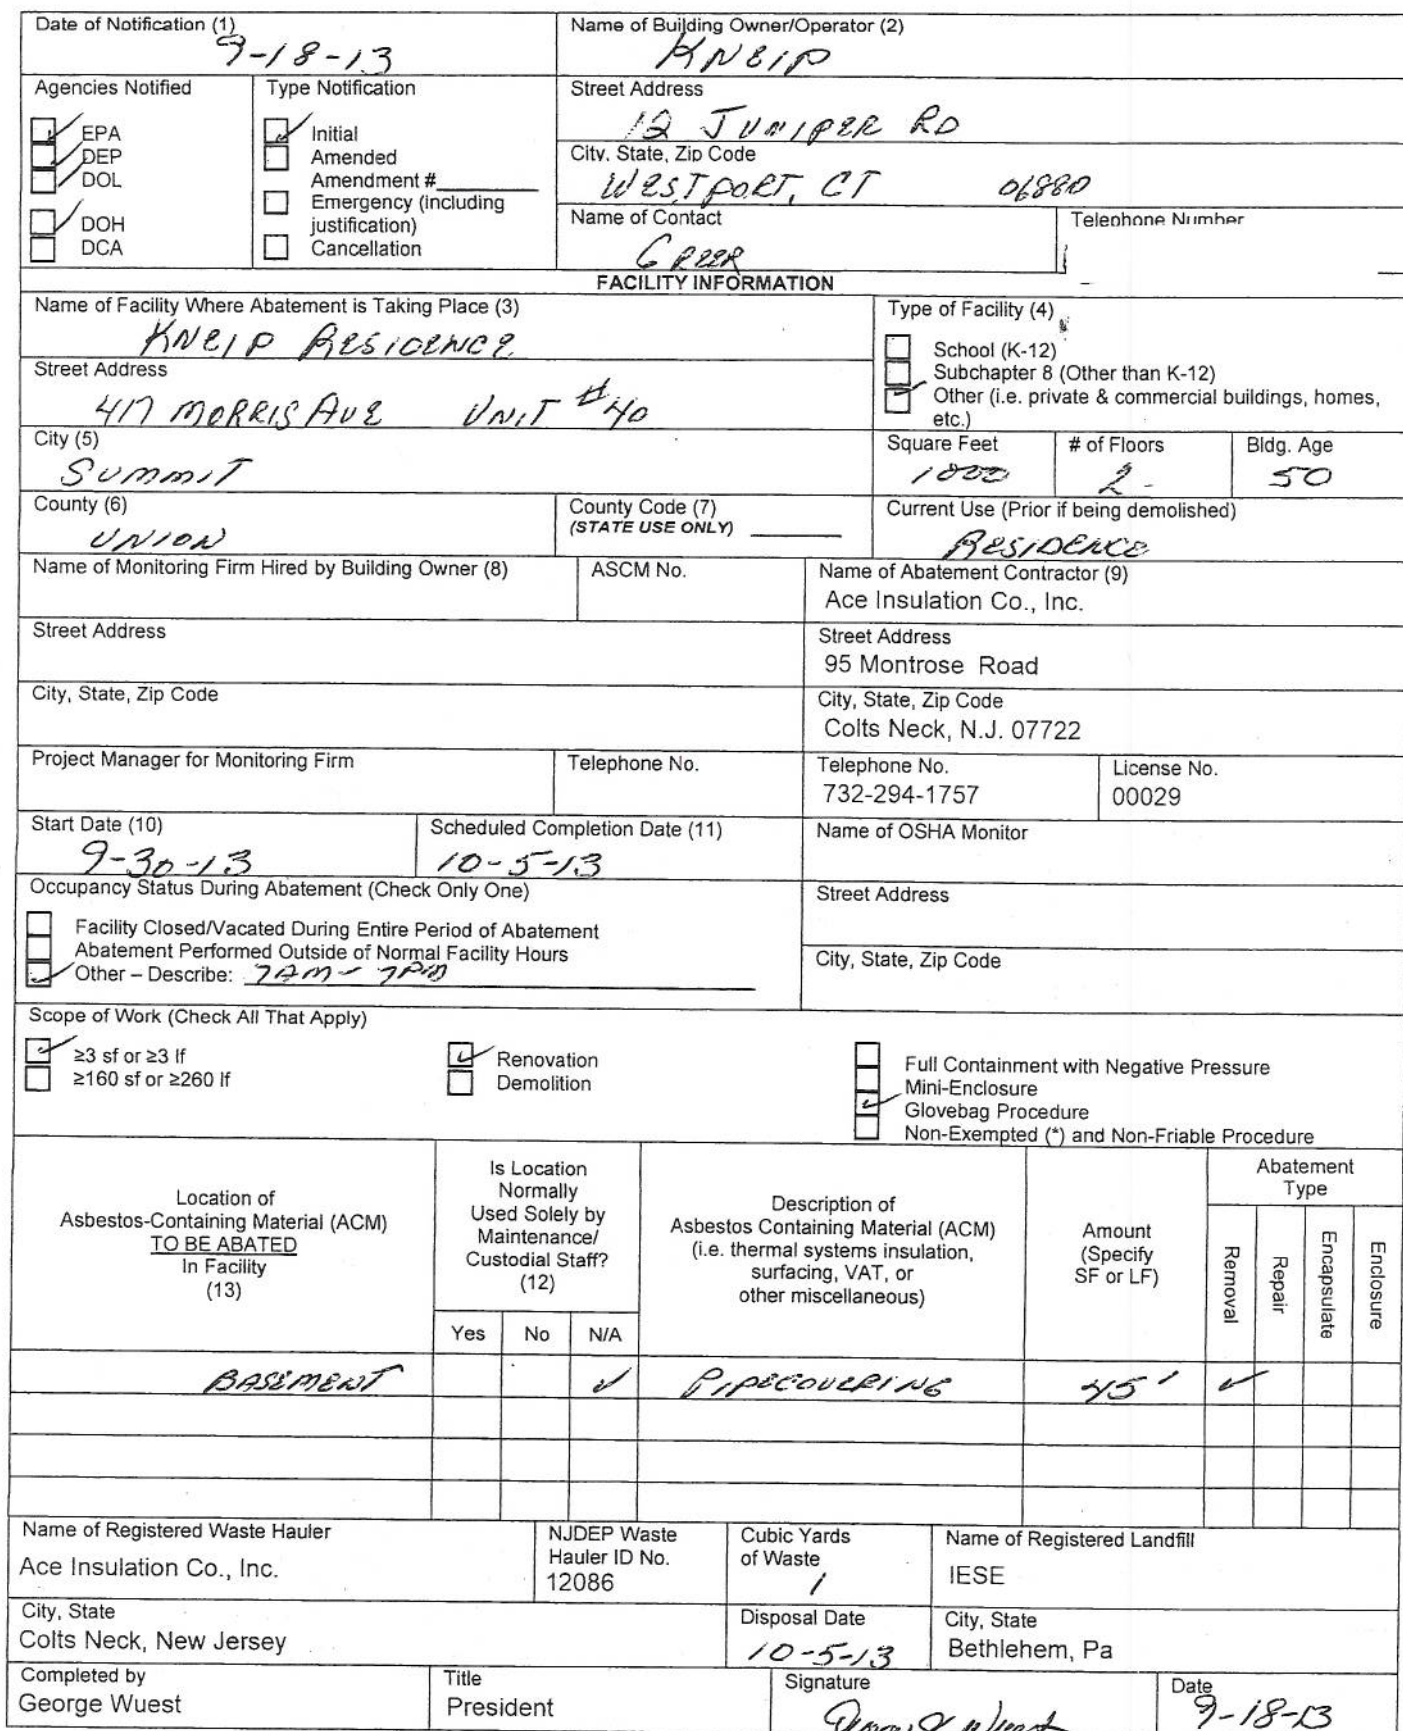 Date of Notification (1)
9-18-13
Name of Building Owner/Operator (2)
KNEIP
Agencies Notified
EPA
DEP
DOL
DOH
DCA
Type Notification
Initial
Amended
Amendment #
Emergency (including
justification)
Cancellation
Street Address
12 JUNIPER RD
City, State, Zip Code
WESTPORT, CT 06880
Name of Contact
GREER
Telephone Number
FACILITY INFORMATION
Name of Facility Where Abatement is Taking Place (3)
KNEIP RESIDENCE
Type of Facility (4)
School (K-12)
Subchapter 8 (Other than K-12)
Other (i.e. private & commercial buildings, homes,
etc.)
Street Address
417 MORRIS AVE UNIT #40
City (5)
SUMMIT
Square Feet
1000
# of Floors
2
Bldg. Age
50
County (6)
UNION
County Code (7)
(STATE USE ONLY)
Current Use (Prior if being demolished)
RESIDENCE
Name of Monitoring Firm Hired by Building Owner (8)
ASCM No.
Name of Abatement Contractor (9)
Ace Insulation Co., Inc.
Street Address
Street Address
95 Montrose Road
City, State, Zip Code
City, State, Zip Code
Colts Neck, N.J. 07722
Project Manager for Monitoring Firm
Telephone No.
Telephone No.
732-294-1757
License No.
00029
Start Date (10)
9-30-13
Scheduled Completion Date (11)
10-5-13
Name of OSHA Monitor
Occupancy Status During Abatement (Check Only One)
Facility Closed/Vacated During Entire Period of Abatement
Abatement Performed Outside of Normal Facility Hours
Other – Describe: 7AM - 7PM
Street Address
City, State, Zip Code
Scope of Work (Check All That Apply)
≥3 sf or ≥3 lf
≥160 sf or ≥260 lf
Renovation
Demolition
Full Containment with Negative Pressure
Mini-Enclosure
Glovebag Procedure
Non-Exempted (*) and Non-Friable Procedure
Location of
Asbestos-Containing Material (ACM)
TO BE ABATED
In Facility
(13)
Is Location
Normally
Used Solely by
Maintenance/
Custodial Staff?
(12)
Yes No N/A
Description of
Asbestos Containing Material (ACM)
(i.e. thermal systems insulation,
surfacing, VAT, or
other miscellaneous)
Amount
(Specify
SF or LF)
Abatement
Type
Removal
Repair
Encapsulate
Enclosure
BASEMENT ✓ PIPECOVERING 45' ✓
Name of Registered Waste Hauler
Ace Insulation Co., Inc.
NJDEP Waste
Hauler ID No.
12086
Cubic Yards
of Waste
1
Name of Registered Landfill
IESE
City, State
Colts Neck, New Jersey
Disposal Date
10-5-13
City, State
Bethlehem, Pa
Completed by
George Wuest
Title
President
Signature
Date
9-18-13